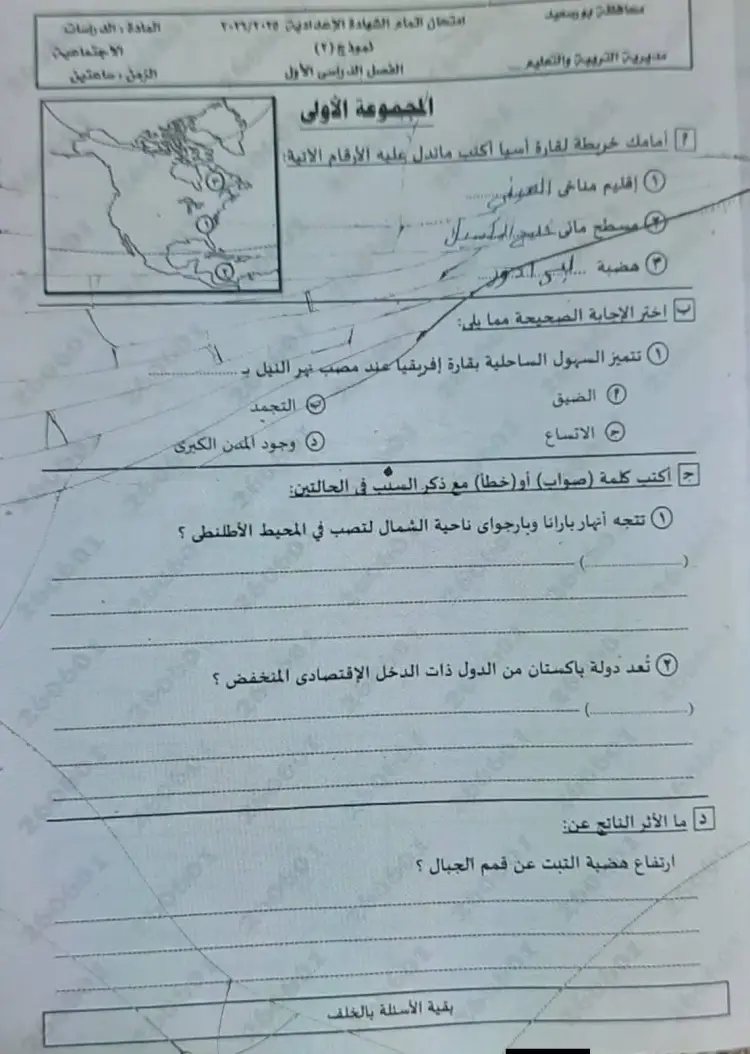 محافظة بورسعيد
مديرية التربية والتعليم
امتحان العام الشهادة الإعدادية ٢٠٢٥/٢٠٢٦
نموذج (٢)
الفصل الدراسى الأول
المادة : الدراسات
الاجتماعية
الزمن : ساعتين
المجموعة الأولى
أ أمامك خريطة لقارة آسيا أكتب ماتدل عليه الأرقام الآتية:
١ إقليم مناخى الصينى
٢ مسطح مائى خليج المكسيك
٣ هضبة لبرادور
٣
١
٢
ب اختر الإجابة الصحيحة مما يلى:
١ تتميز السهول الساحلية بقارة إفريقيا عند مصب نهر النيل بـ ..................
أ الضيق ب التجمد
ج الاتساع د وجود المدن الكبرى
ج أكتب كلمة (صواب) أو (خطأ) مع ذكر السبب فى الحالتين:
١ تتجه أنهار بارانا وبارجواى ناحية الشمال لتصب فى المحيط الأطلنطى ؟
(..................)
٢ تُعد دولة باكستان من الدول ذات الدخل الإقتصادى المنخفض ؟
(..................)
د ما الأثر الناتج عن:
ارتفاع هضبة التبت عن قمم الجبال ؟
بقية الأسئلة بالخلف
260601